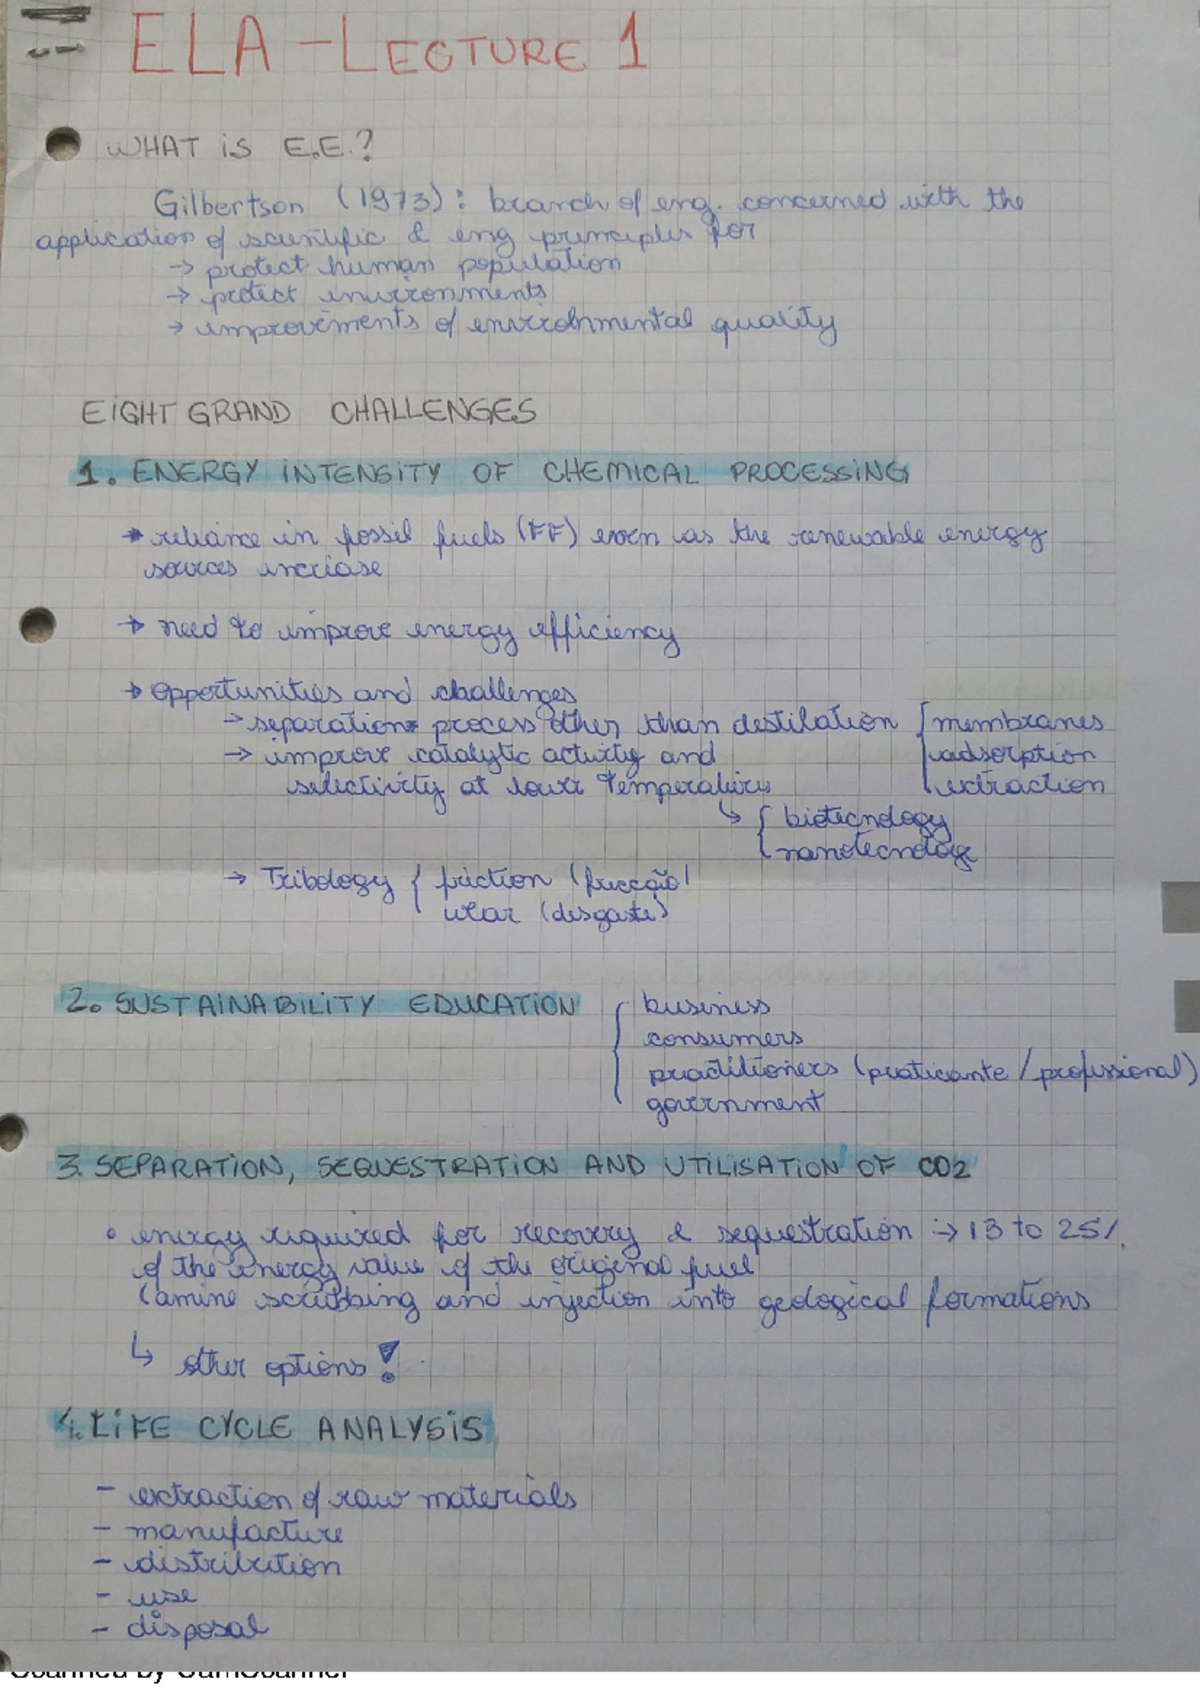 ELA - LECTURE 1
WHAT iS E.E.?
Gilbertson (1973): branch of eng. concerned with the
application of scientific & eng principles for
→ protect human population
→ protect environments
→ improvements of environmental quality
EiGHT GRAND CHALLENGES
1. ENERGY iNTENSiTY OF CHEMiCAL PROCESSiNG
→ reliance in fossil fuels (FF) even as the renewable energy
sources increase
→ need to improve energy efficiency
→ opportunities and challenges
→ separation process other than destilation { membranes
→ improve catalytic activity and adsorption
selectivity at lower temperatures extraction
↳ { biotecnology
nanotecnology
→ Tribology { friction (fricção)
wear (desgaste)
2. SUSTAiNABiLiTY EDUCATiON { business
consumers
practitioners (praticante / profissional)
government
3. SEPARATiON, SEQUESTRATiON AND UTiLiSATiON OF CO2
• energy required for recovery & sequestration :→ 13 to 25%
of the energy value of the original fuel
(amine scrubbing and injection into geological formations
↳ other options!
4. LiFE CYCLE ANALYSiS
- extraction of raw materials
- manufacture
- distribution
- use
- disposal
Scanned by CamScanner